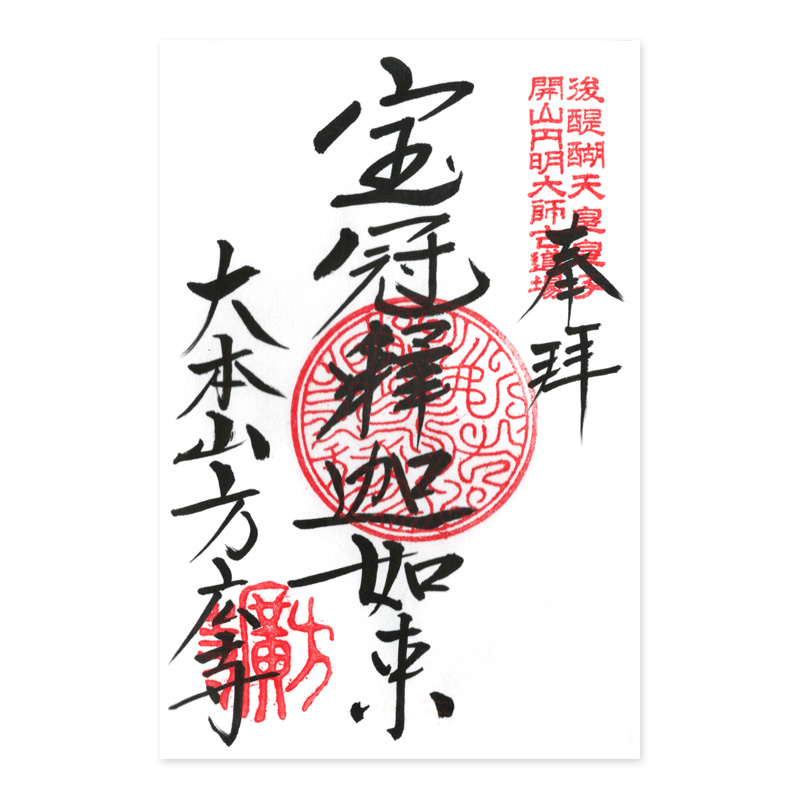 後醍醐天皇皇子
開山円明大師古道場
奉拝
宝冠釋迦如来
大本山方広寺